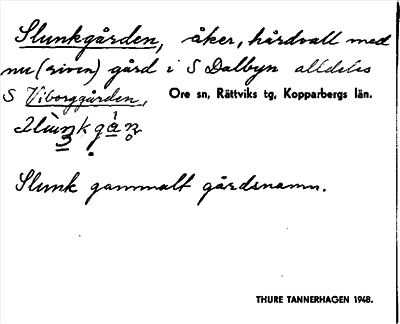 Slunkgården, åker, hårdvall med
nu (riven) gård i S Dalbyn alldeles
S Viborggården, Ore sn, Rättviks tg, Kopparbergs län.
Slunk gammalt gårdsnamn.
THURE TANNERHAGEN 1948.